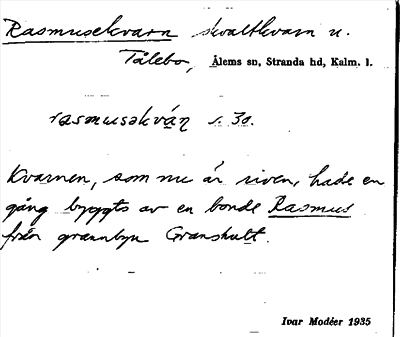 Rasmusekvarn skvaltkvarn u.
Tålebo, Ålems sn, Stranda hd, Kalm. l.
rasmusəkváɳ s. 30.
Kvarnen, som nu är riven, hade en
gång byggts av en bonde Rasmus
från grannbyn Granshult.
Ivar Modéer 1935